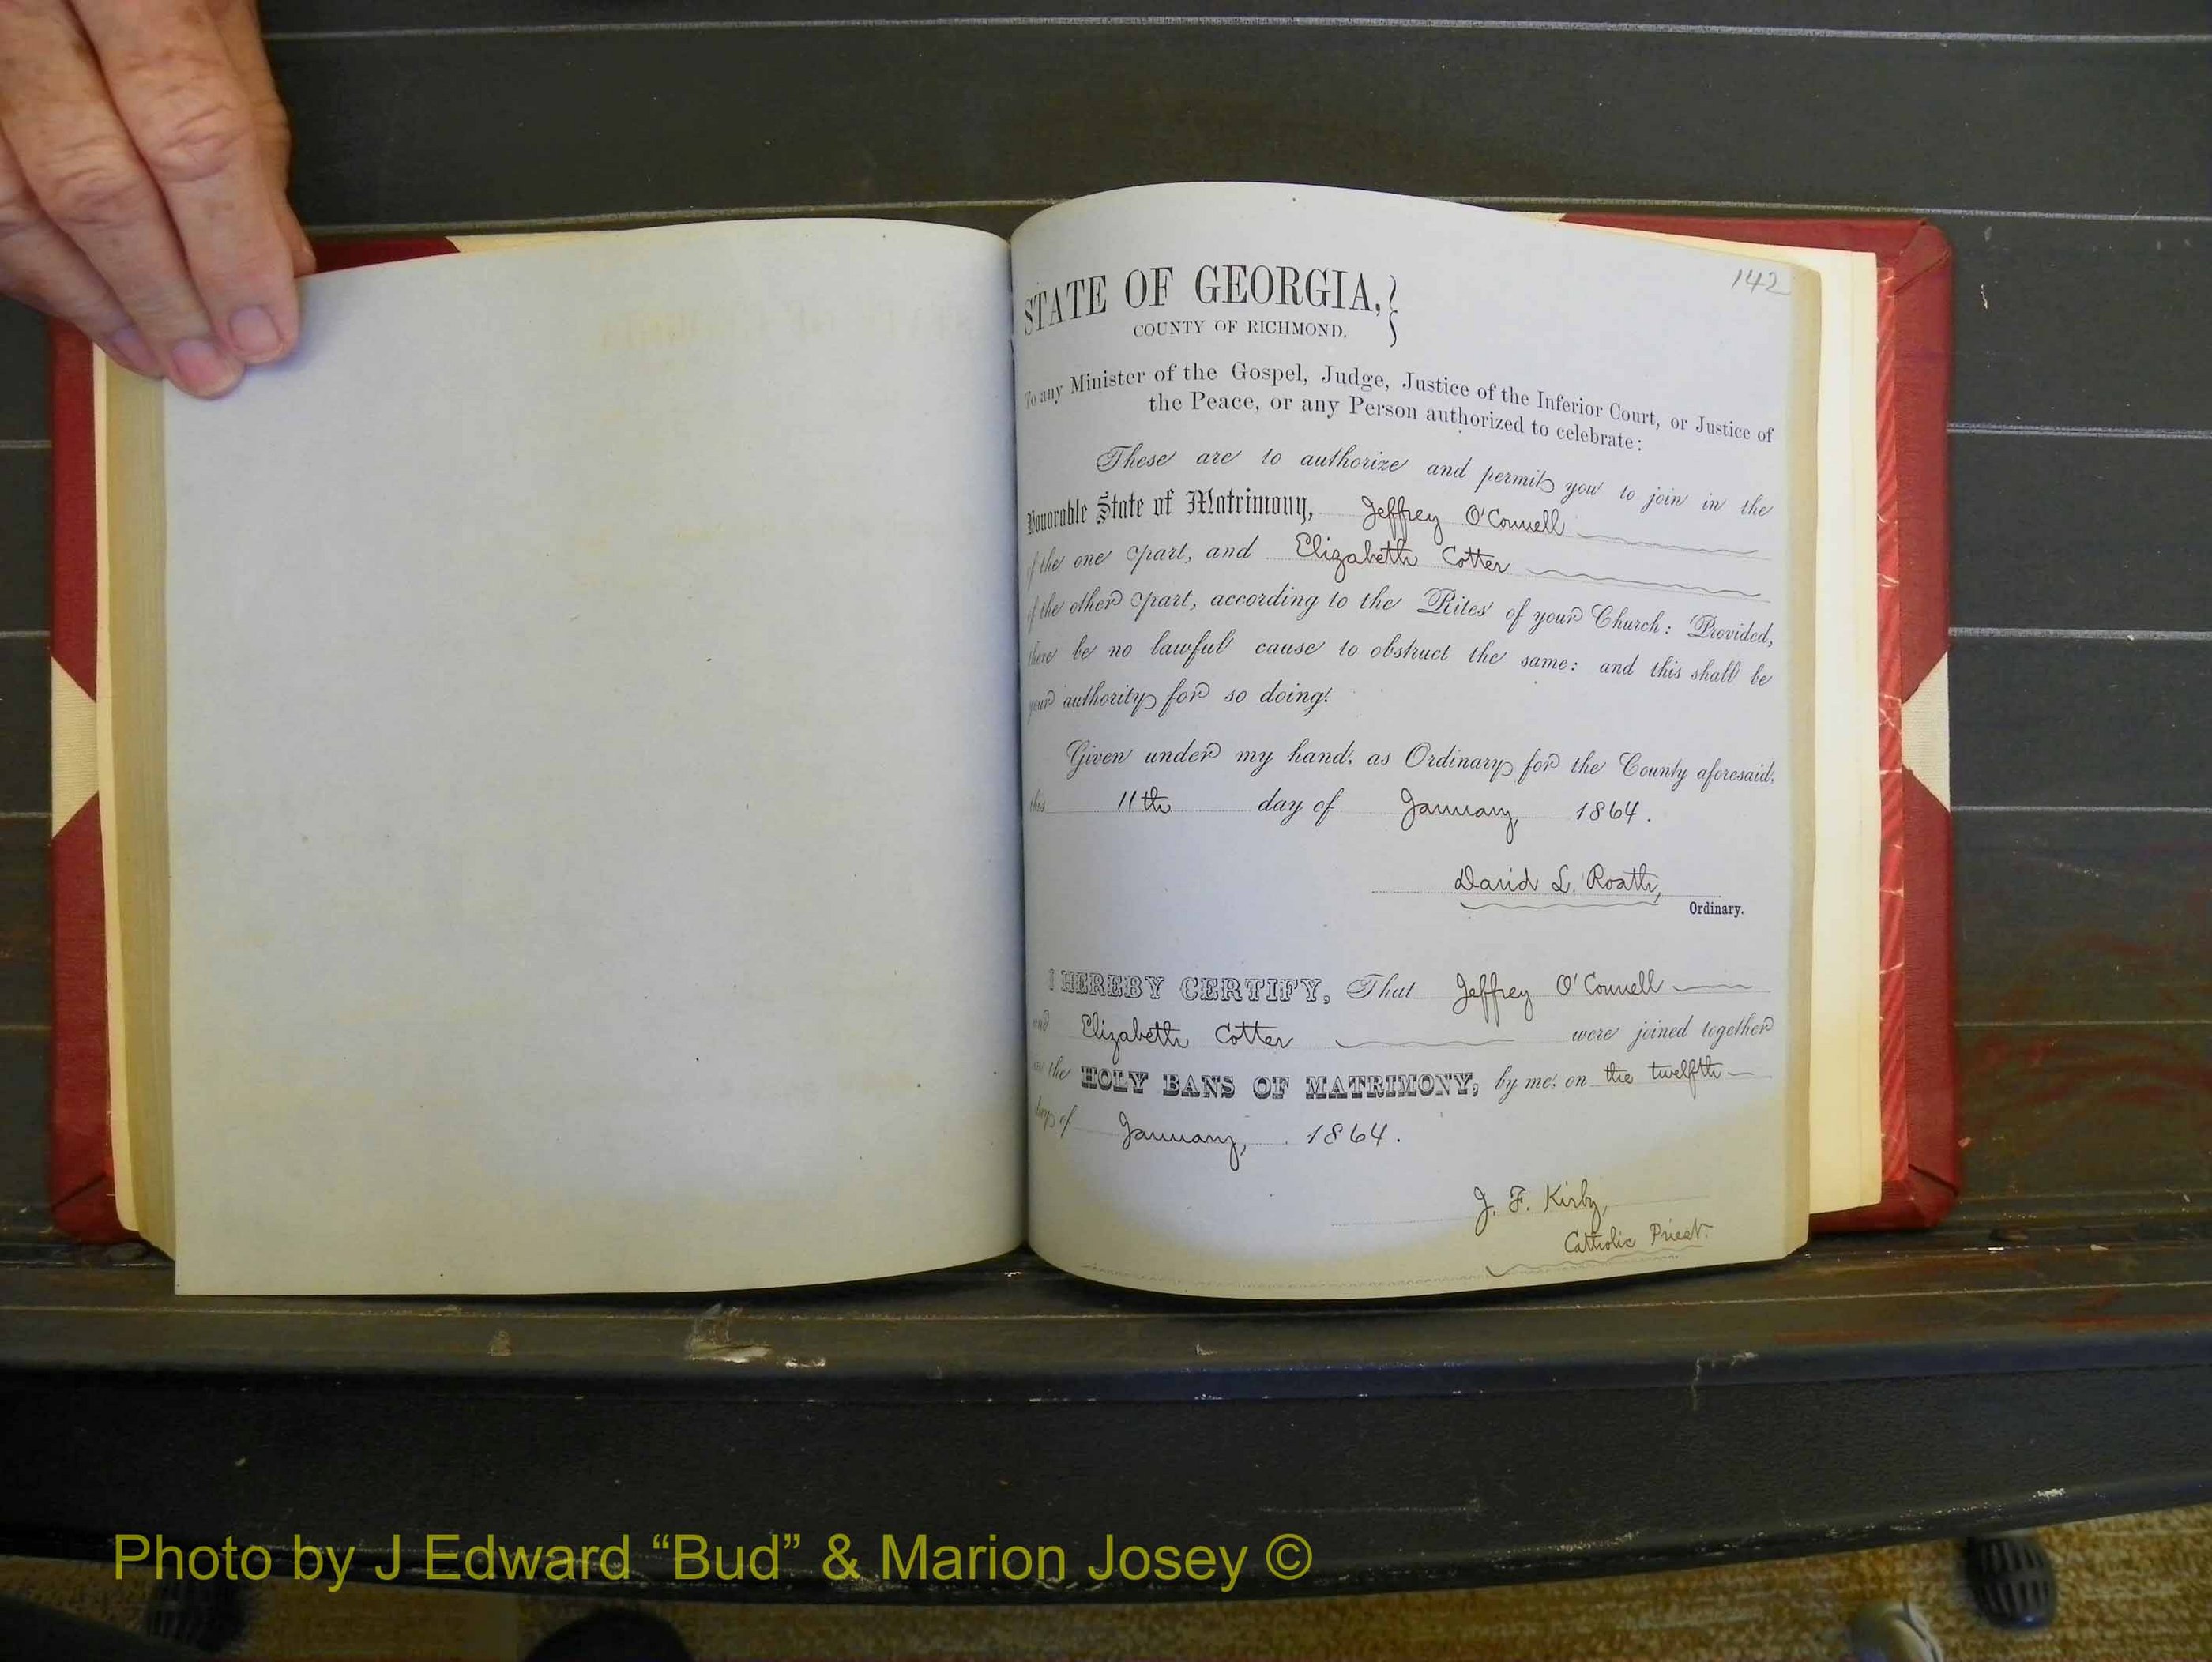 142
STATE OF GEORGIA,
COUNTY OF RICHMOND.
To any Minister of the Gospel, Judge, Justice of the Inferior Court, or Justice of
the Peace, or any Person authorized to celebrate:
These are to authorize and permit you to join in the
Honorable State of Matrimony, Jeffrey O'Connell
of the one part, and Elizabeth Cotter
of the other part, according to the Rites of your Church: Provided,
there be no lawful cause to obstruct the same: and this shall be
your authority for so doing.
Given under my hand, as Ordinary for the County aforesaid,
this 11th day of January, 1864.
David L. Roath,
Ordinary.
I HEREBY CERTIFY, That Jeffrey O'Connell
and Elizabeth Cotter were joined together
in the HOLY BANS OF MATRIMONY, by me, on the twelfth
day of January, 1864.
J. F. Kirby,
Catholic Priest.
Photo by J Edward “Bud” & Marion Josey ©